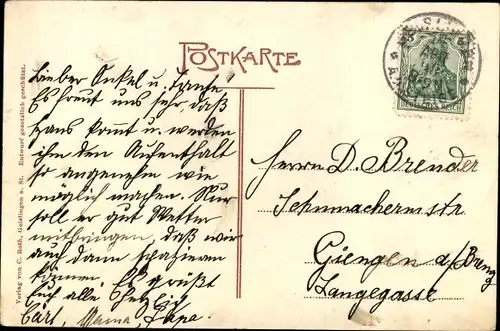 POSTKARTE
Lieber Onkel u. Tante!
Es freut uns sehr, daß
Hans kommt u. werden
ihm den Aufenthalt
so angenehm wie
möglich machen. Nur
soll er gut Wetter
mitbringen, daß wir
auch dann spazieren
können. Es grüßt
Euch alle herzlich
Carl, Mama Papa.
Herrn D. Brender
Schumachermstr
Giengen a/Brenz
Langegasse
Verlag von C. Roth, Geislingen a. St. Entwurf gesetzlich geschützt.
DEUTSCHES REICH